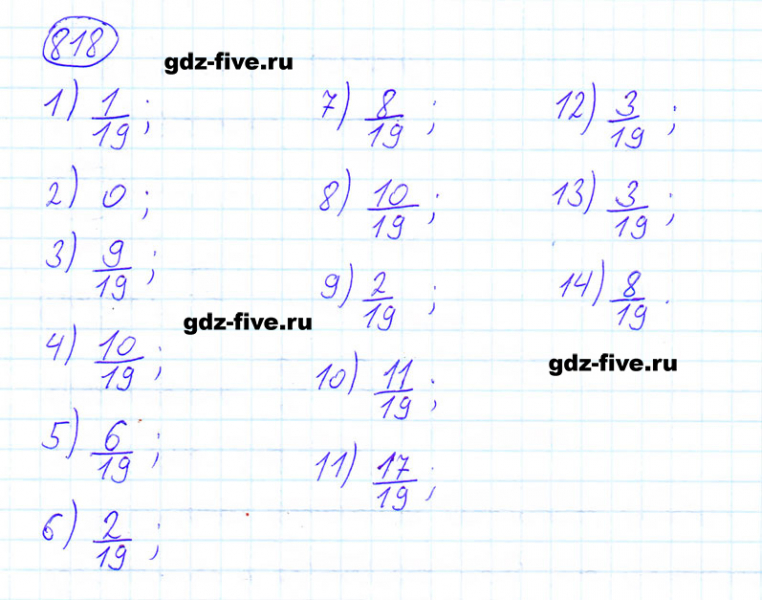 818
gdz-five.ru
1) 1/19;
2) 0;
3) 9/19;
4) 10/19;
5) 6/19;
6) 2/19;
7) 8/19;
8) 10/19;
9) 2/19;
10) 11/19;
11) 17/19;
12) 3/19;
13) 3/19;
14) 8/19.
gdz-five.ru
gdz-five.ru